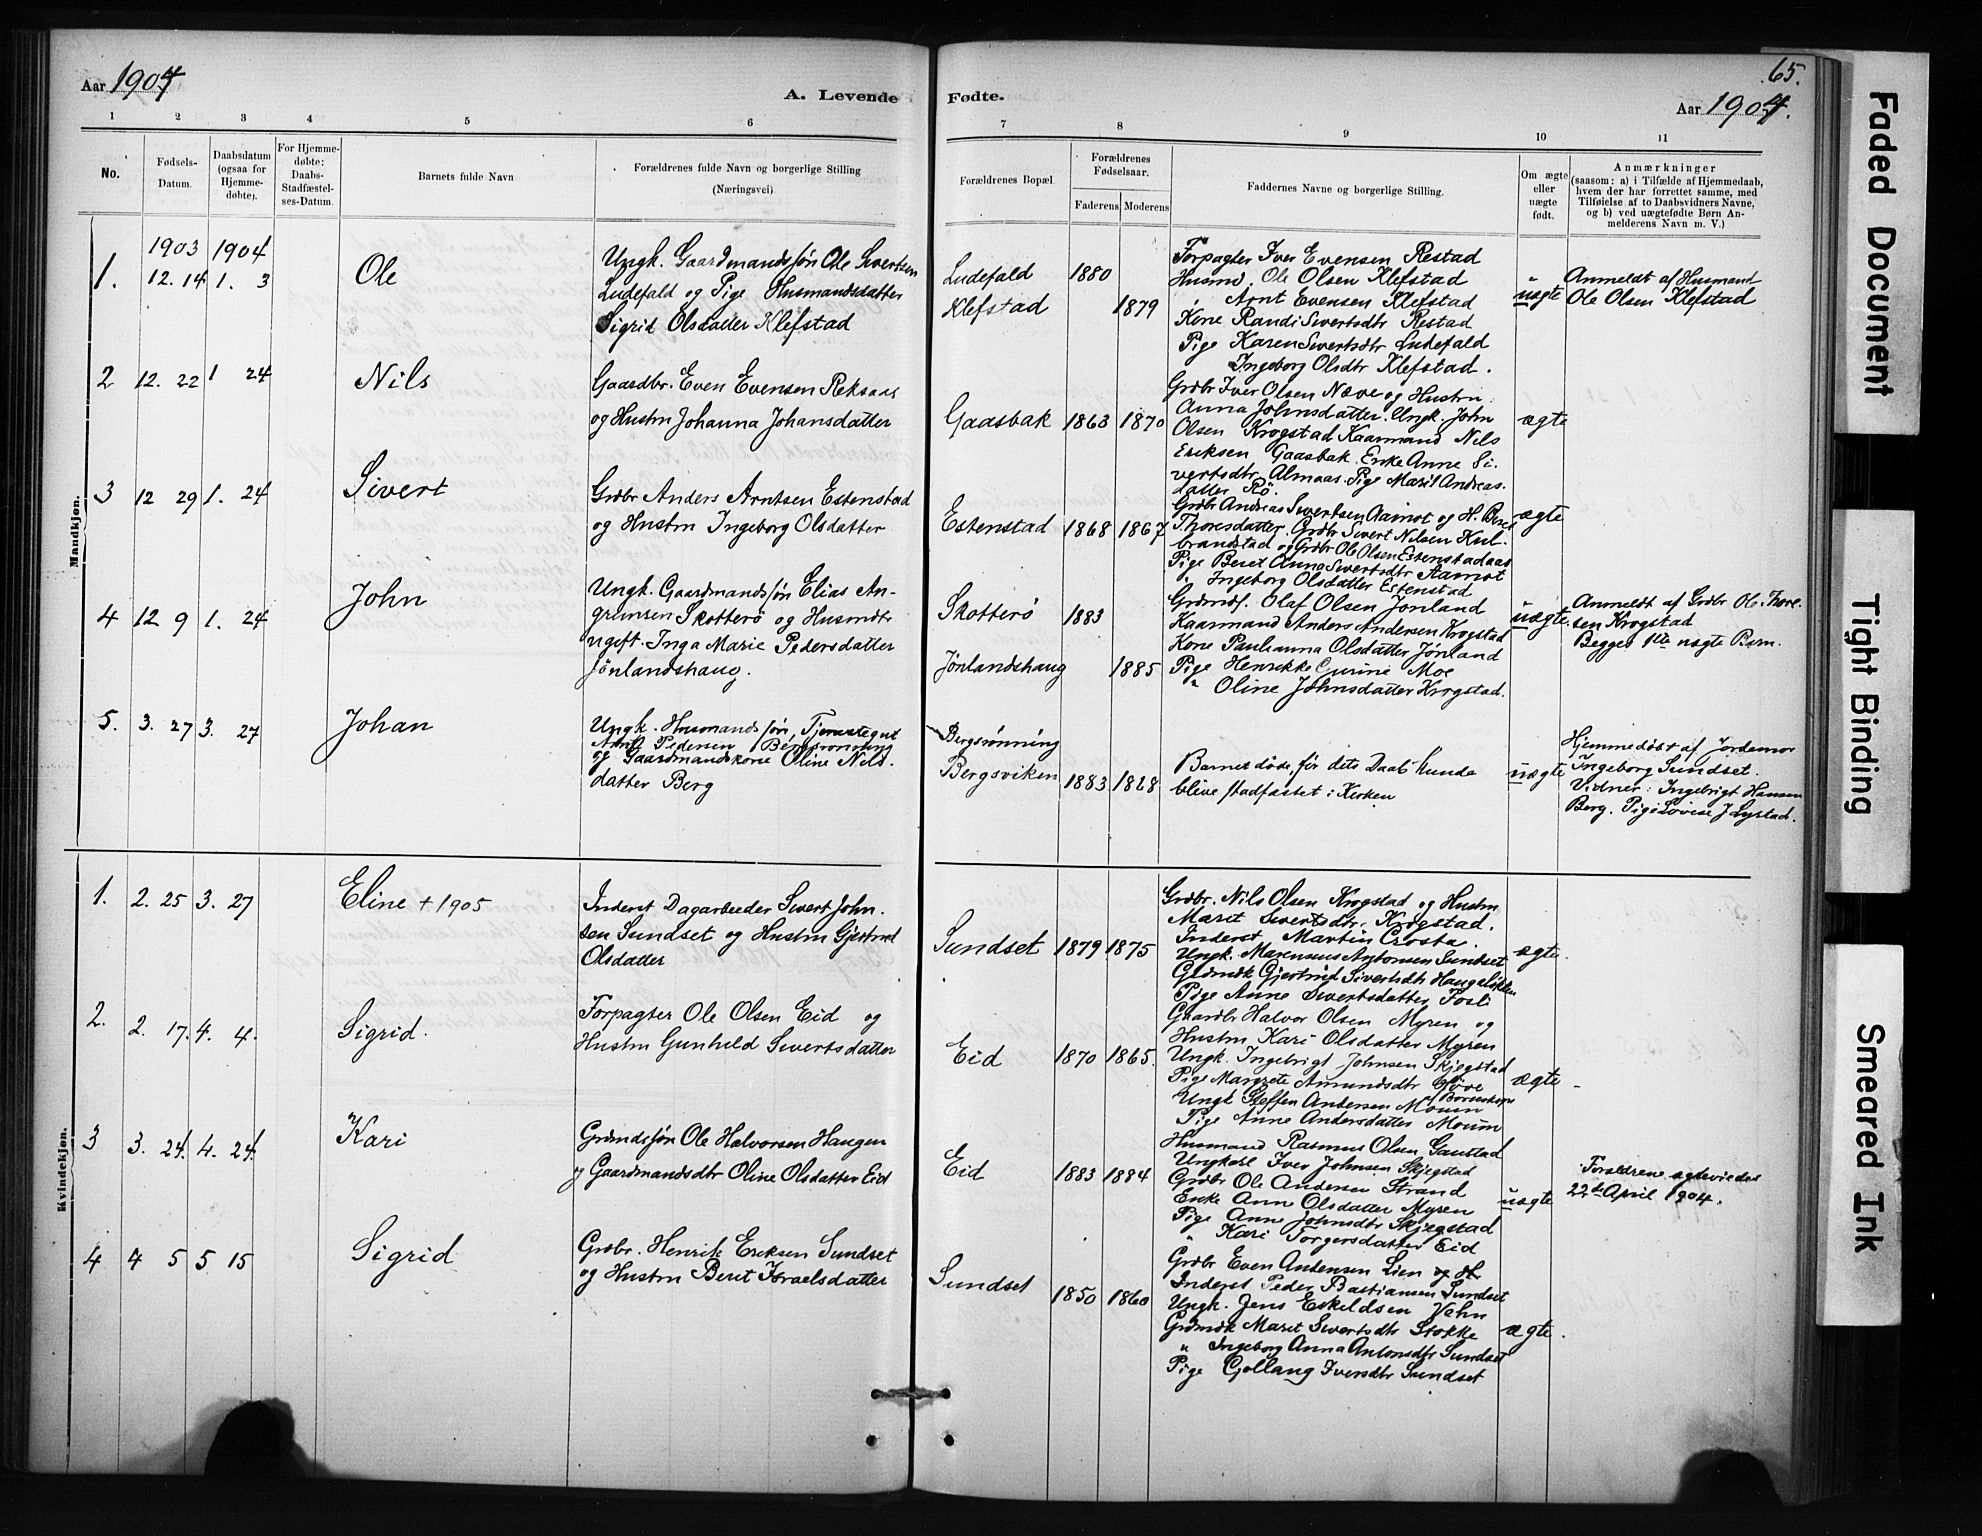 Aar 1904
A. Levende
1 2 3 4 5 6
No.
Fødsels-Datum.
Daabsdatum (ogsaa for Hjemmedøbte).
For Hjemmedøbte: Daabs-Stadfæstelses-Datum.
Barnets fulde Navn
Forældrenes fulde Navn og borgerlige Stilling (Næringsvei).
Mandkjøn.
1903 1904
1. 12. 14 1. 3 Ole
Ungk. Gaardmandssøn Ole Sivertsen
Ludefald og Pige Husmandsdatter
Sigrid Olsdatter Klefstad
2 12. 22 1 24 Nils
Gaardbr. Even Evensen Reksaas
og Hustru Johanna Johansdatter
3 12 29 1. 24 Sivert
Grdbr Anders Arntsen Estenstad
og Hustru Ingeborg Olsdatter
4 12 9 1. 24 John
Ungk. Gaardmandssøn Elias An-
grimsen Skotterö og Husmdtr
ugift. Inga Marie Pedersdatter
Jönlandshaug.
5. 3. 27 3. 27 Johan
Ungk. Husmandssøn, Tjenestegut
Arnt Pedersen Bergsrønning
og Gaardmandskone Oline Nils-
datter Berg
Kvindekjøn.
1. 2. 25 3. 27 Eline + 1905
Inderst Dagarbeider Sivert John-
sen Sundset og Hustru Gjertrud
Olsdatter
2. 2. 17. 4. 4. Sigrid.
Forpagter Ole Olsen Eid og
Hustru Gunhild Sivertsdatter
3 3. 24. 4. 24. Kari
Grdmdssøn Ole Halvorsen Haugen
og Gaardmandsdtr Oline Olsdatter Eid
4 4 5 5 15 Sigrid
Grdbr. Henrik Eriksen Sundset
og Hustru Beret Israelsdatter
65.
Fødte.
Aar 1904.
7 8 9 10 11
Forældrenes Bopæl.
Forældrenes Fødselsaar.
Faderens Moderens
Faddernes Navne og borgerlige Stilling.
Om ægte eller uægte født.
Anmærkninger
(saasom: a) i Tilfælde af Hjemmedaab,
hvem der har forrettet samme, med
Tilføielse af to Daabsvidners Navne,
og b) ved uægtefødte Børn An-
melderens Navn m. V.)
Ludefald 1880
Klefstad 1879
Forpagter Iver Evensen Restad
Husmd. Ole Olsen Klefstad
" Arnt Evensen Klefstad
Kone Randi Sivertsdtr Restad
Pige Karen Sivertsdtr Ludefald
Ingeborg Olsdtr Klefstad.
uægte
Anmeldt af Husmand
Ole Olsen Klefstad
Gaasbak 1863 1870
Grdbr Iver Olsen Næve og Hustru
Anna Johnsdatter. Ungk. John
Olsen Krogstad Kaarmand Nils
Eriksen Gaasbak. Enke Anne Si-
vertsdtr Almaas. Pige Marit Andreas-
datter Rö.
ægte
Estenstad 1868 1867
Grdbr Andreas Sivertsen Aamot og H. Beret
Thoresdatter. Grdbr Sivert Nilsen Kul-
brandstad og Grdbr Ole Olsen Estenstadaas
Pige Beret Anna Sivertsdtr Aamot
" Ingeborg Olsdatter Estenstad
ægte
Skotterö 1883
Jönlandshaug 1885
Grdmds. Olaf Olsen Jönland
Kaarmand Anders Andersen Krogstad
Kone Pauhanna Olsdatter Jönland
Pige Henrikke Gurine Moe
" Oline Johnsdatter Krogstad.
uægte
Anmeldt af Grdbr Ole Thore-
sen Krogstad
Begges 1ste uægte Barn.
Bergsrønning
Bergsviken 1883 1828
Barnet døde, før dets Daab kunde
blive stadfæstet i Kirken
uægte
Hjemmedøbt af Jordemor
Ingeborg Sundset.
Vidner: Ingebrigt Hansen
Berg. Pige Lovise J Lystad.
Sundset 1879 1875
Grdbr. Nils Olsen Krogstad og Hustru
Maret Sivertsdtr. Krogstad.
Inderst Martin Crosta.
Ungk. Marensius Antonsen Sundset
Grdmdk Gjertrud Sivertsdtr Haugalökken
Pige Anne Sivertsdatter Fosli
ægte.
Eid 1870 1865.
Gaardbr Halvor Olsen Myren og
Hustru Kari Olsdatter Myren
Ungk. Ingebrigt Johnsen Skjegstad
Pige Margrete Amundsdtr
Ungk Steffen Andersen Moum
Pige Anne Andersdatter Moum
ægte
Eid 1883 1884
Husmand Rasmus Olsen Gaustad
Ungkarl Iver Johnsen Skjegstad
Grdbr Ole Andersen Strand
Enke Anne Olsdatter Myren
Pige Anne Johnsdtr Skjegstad
" Kari Torgersdatter Eid
uægte
Forældrene ægteviedes
22de April 1904.
Sundset 1850 1860
Grdbr Even Andersen Lien og H.
Inderst Peder Bastiansen Sundset
Ungk. Jens Eskildsen Vehn
Grdmdk Maret Sivertsdtr Stokke
" Ingeborg Anna Antonsdtr Sundset
Pige Gollaug Iversdtr Sundset
ægte.
Faded Document
Tight Binding
Smeared Ink